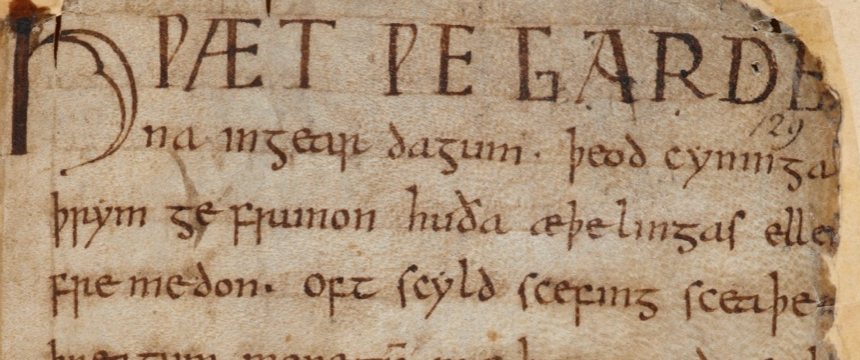 HǷÆT ǷE GARDE
129
na ingear dagum. þeod cyninga
þrym ge frunon huða æþelingas elle
fremedon. oft scyld scefing sceaþe
þreatum